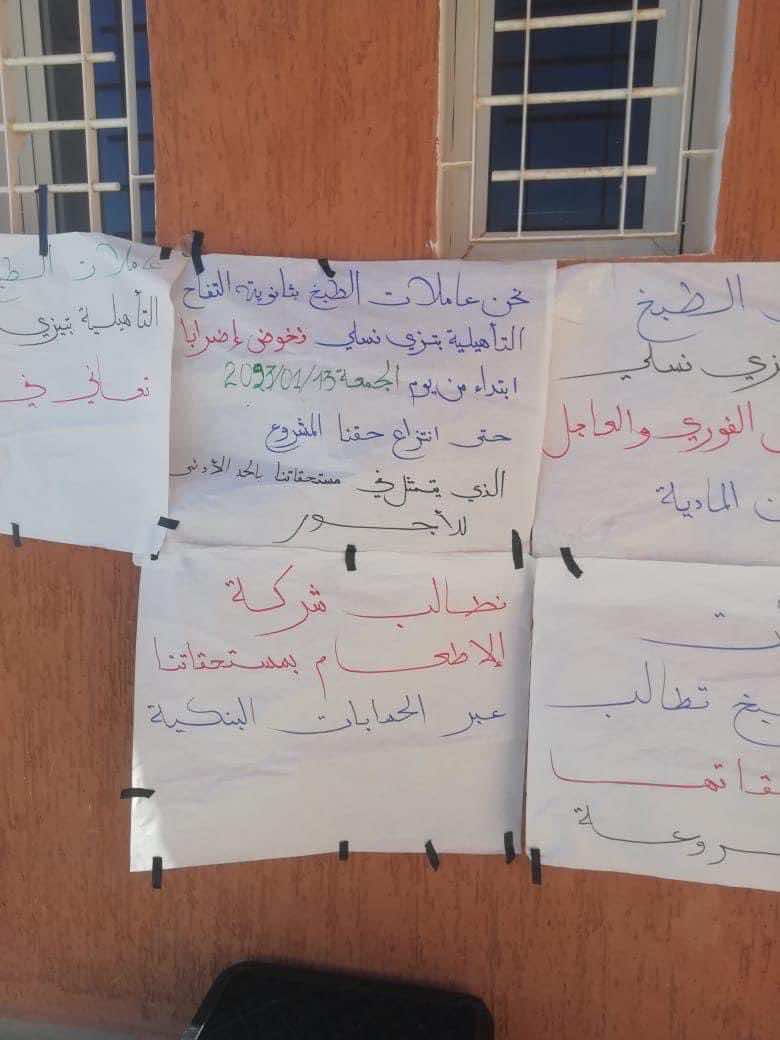 نحن عاملات الطبخ بثانوية التفاح
التأهيلية بتزي نسلي نخوض إضرابا
ابتداء من يوم الجمعة 2023/01/13
حتى انتزاع حقنا المشروع
الذي يتمثل في مستحقاتنا بالحد الأدنى
للأجور
نطالب شركة
الإطعام بمستحقاتنا
عبر الحسابات البنكية
الطبخ
زي نسلي
الفوري والعاجل
المادية
تطالب
عاملات
التأهيلية بتيزي
تعاني في